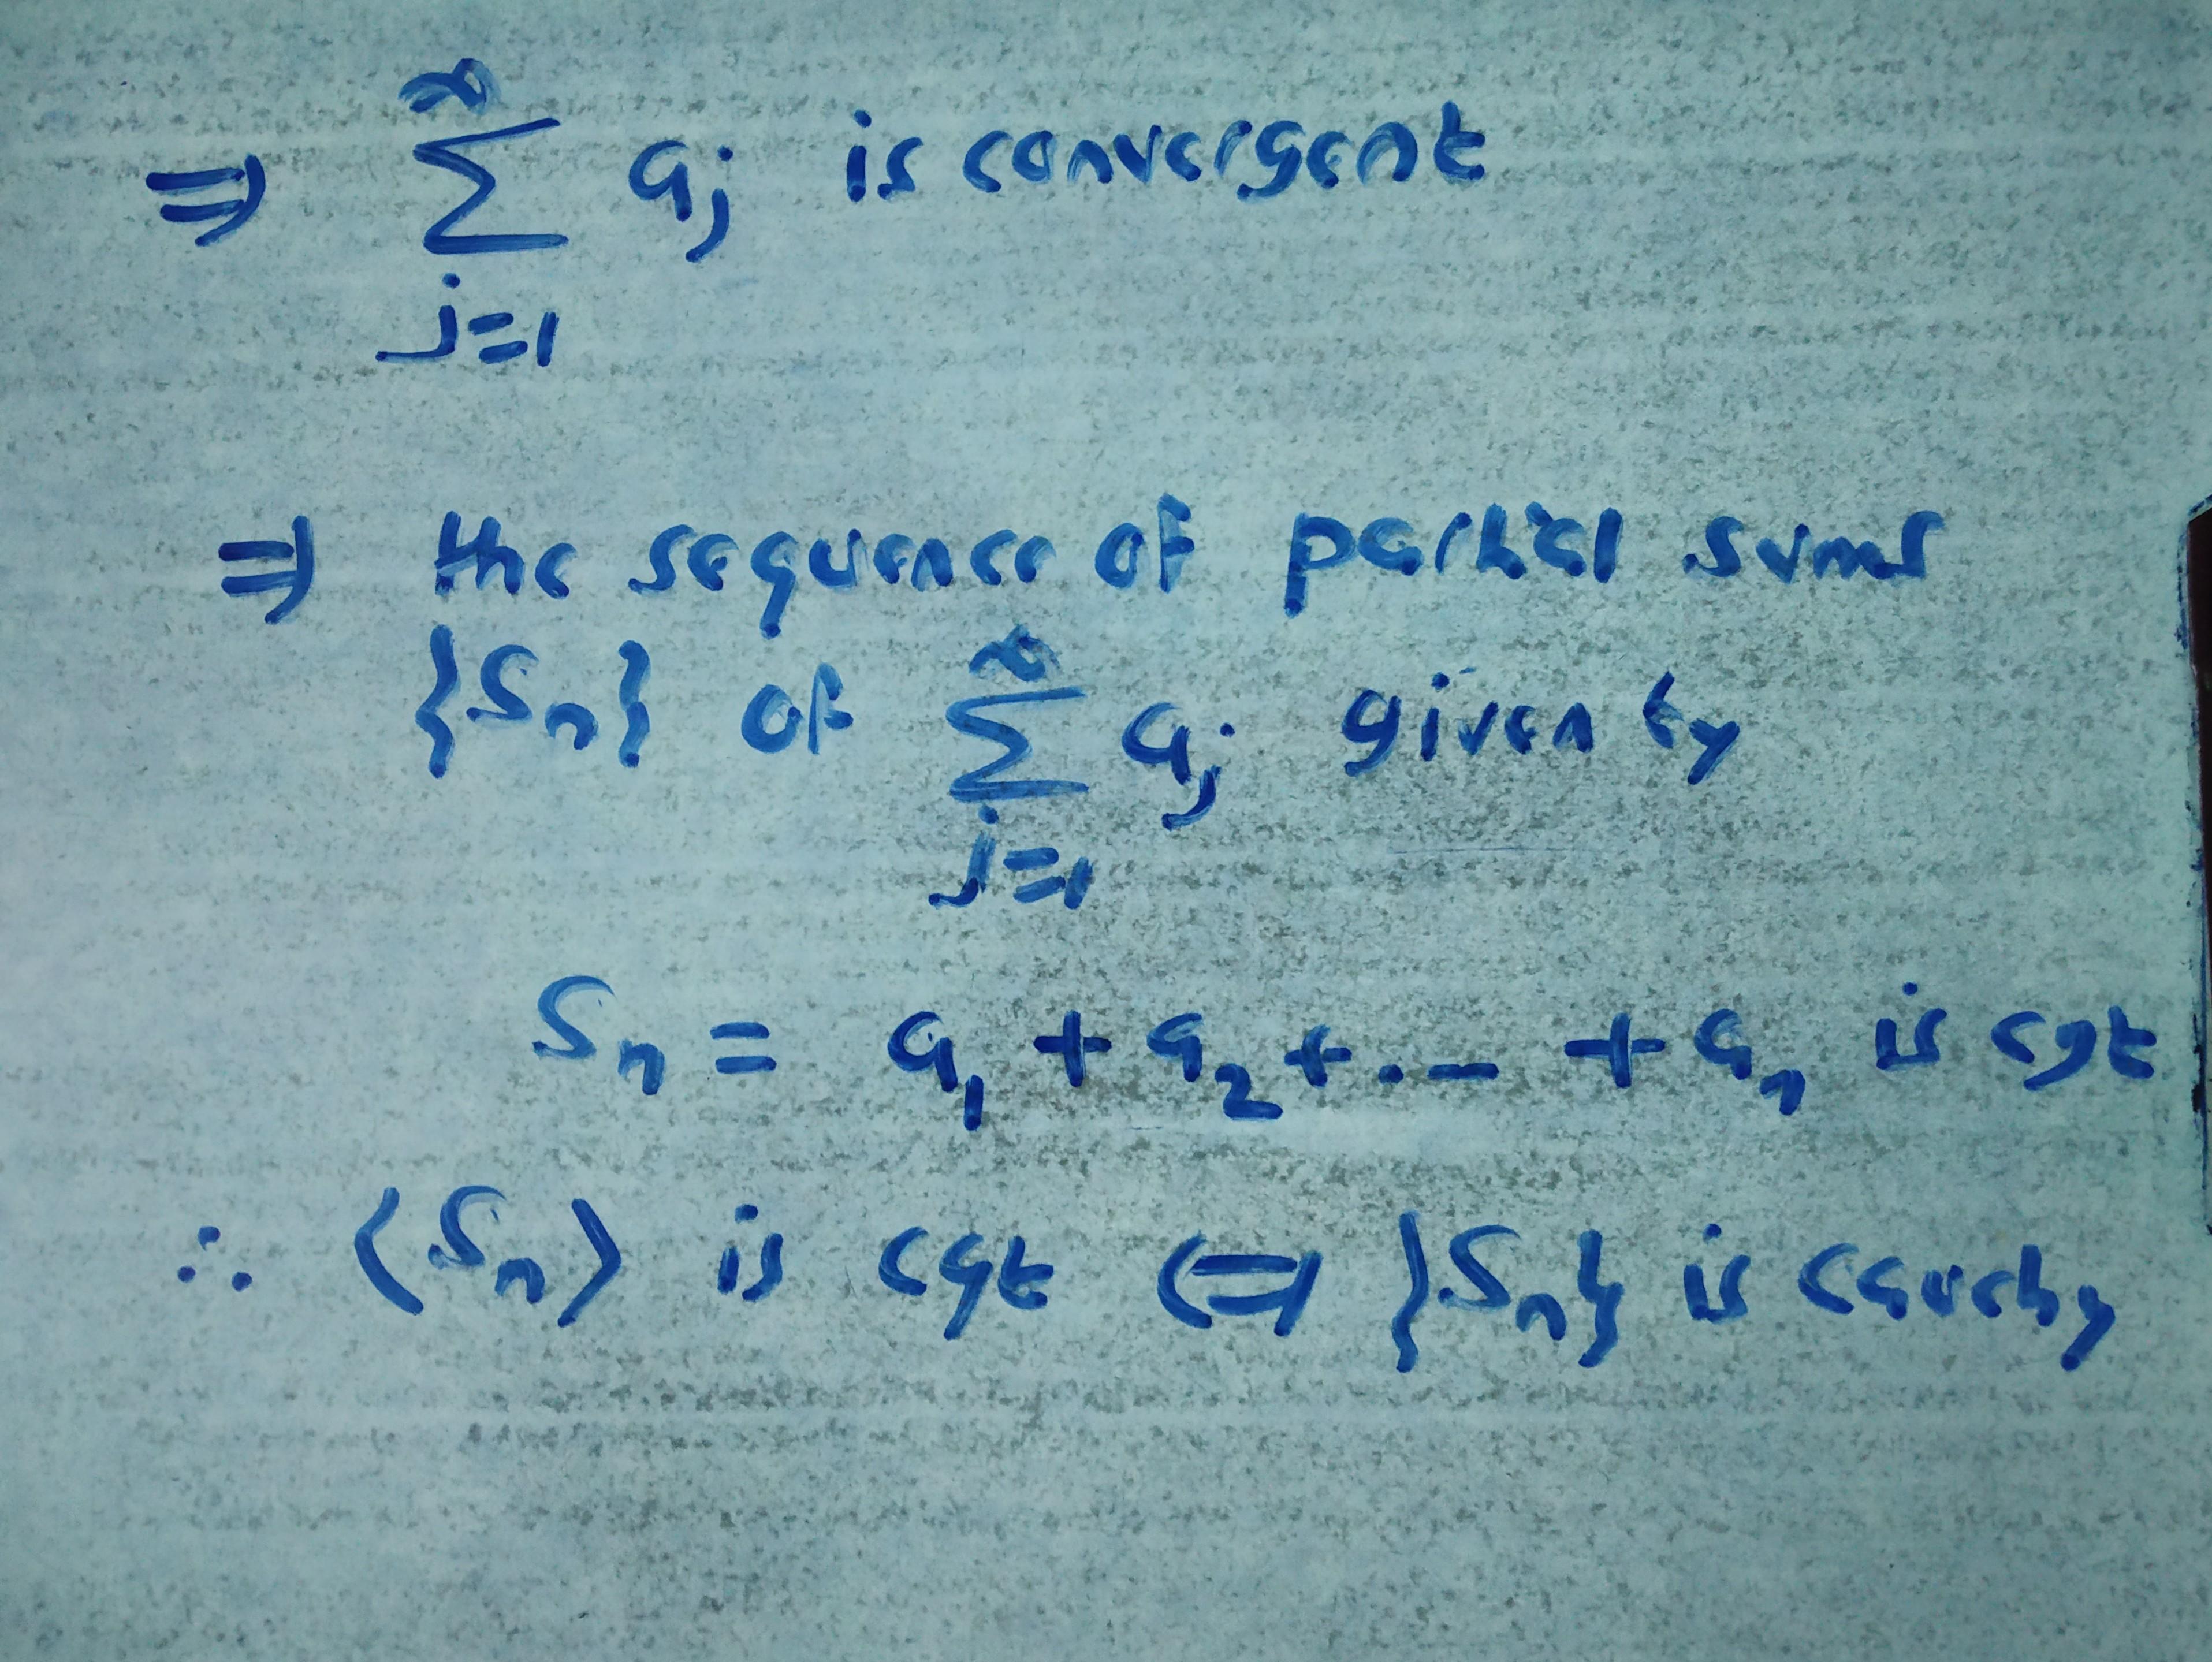 ⇒ ∑_{j=1}^{∞} a_j is convergent
⇒ the sequence of partial sums
{S_n} of ∑_{j=1}^{∞} a_j given by
S_n = a_1 + a_2 + ... + a_n is cgt
∴ ⟨S_n⟩ is cgt ⇔ {S_n} is cauchy